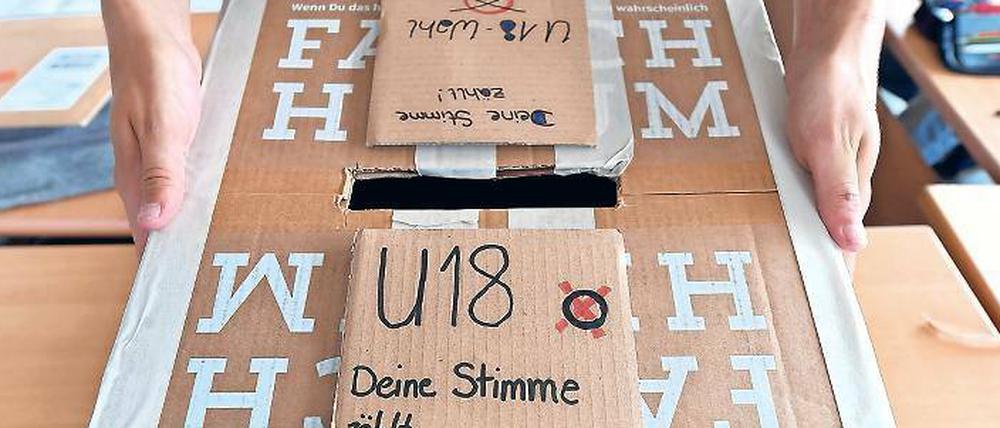 Wenn Du das h
wahrscheinlich
FA
CH
H
UM
U18-Wahl
Deine Stimme
zählt!
U18
Deine Stimme
zählt